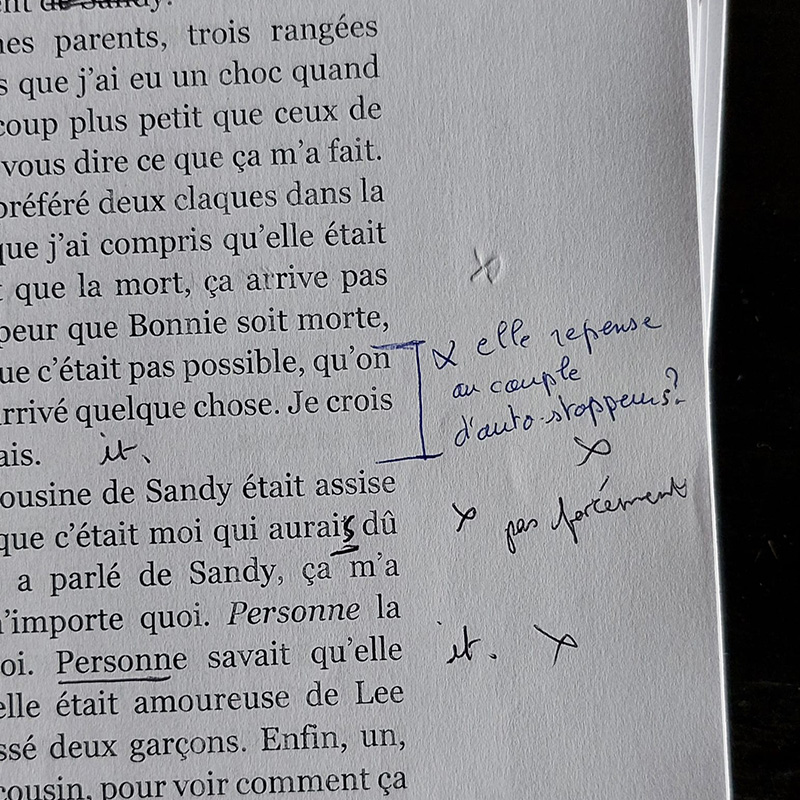 de Sandy.
parents, trois rangées
que j'ai eu un choc quand
coup plus petit que ceux de
vous dire ce que ça m'a fait.
préféré deux claques dans la
que j'ai compris qu'elle était
que la mort, ça arrive pas
peur que Bonnie soit morte,
ue c'était pas possible, qu'on
rrivé quelque chose. Je crois
ais. it.
elle repense
au couple
d'auto-stoppeurs?
ousine de Sandy était assise
que c'était moi qui aurais dû
pas forcément
a parlé de Sandy, ça m'a
n'importe quoi. Personne la
oi. Personne savait qu'elle it.
elle était amoureuse de Lee
ssé deux garçons. Enfin, un,
cousin, pour voir comment ça